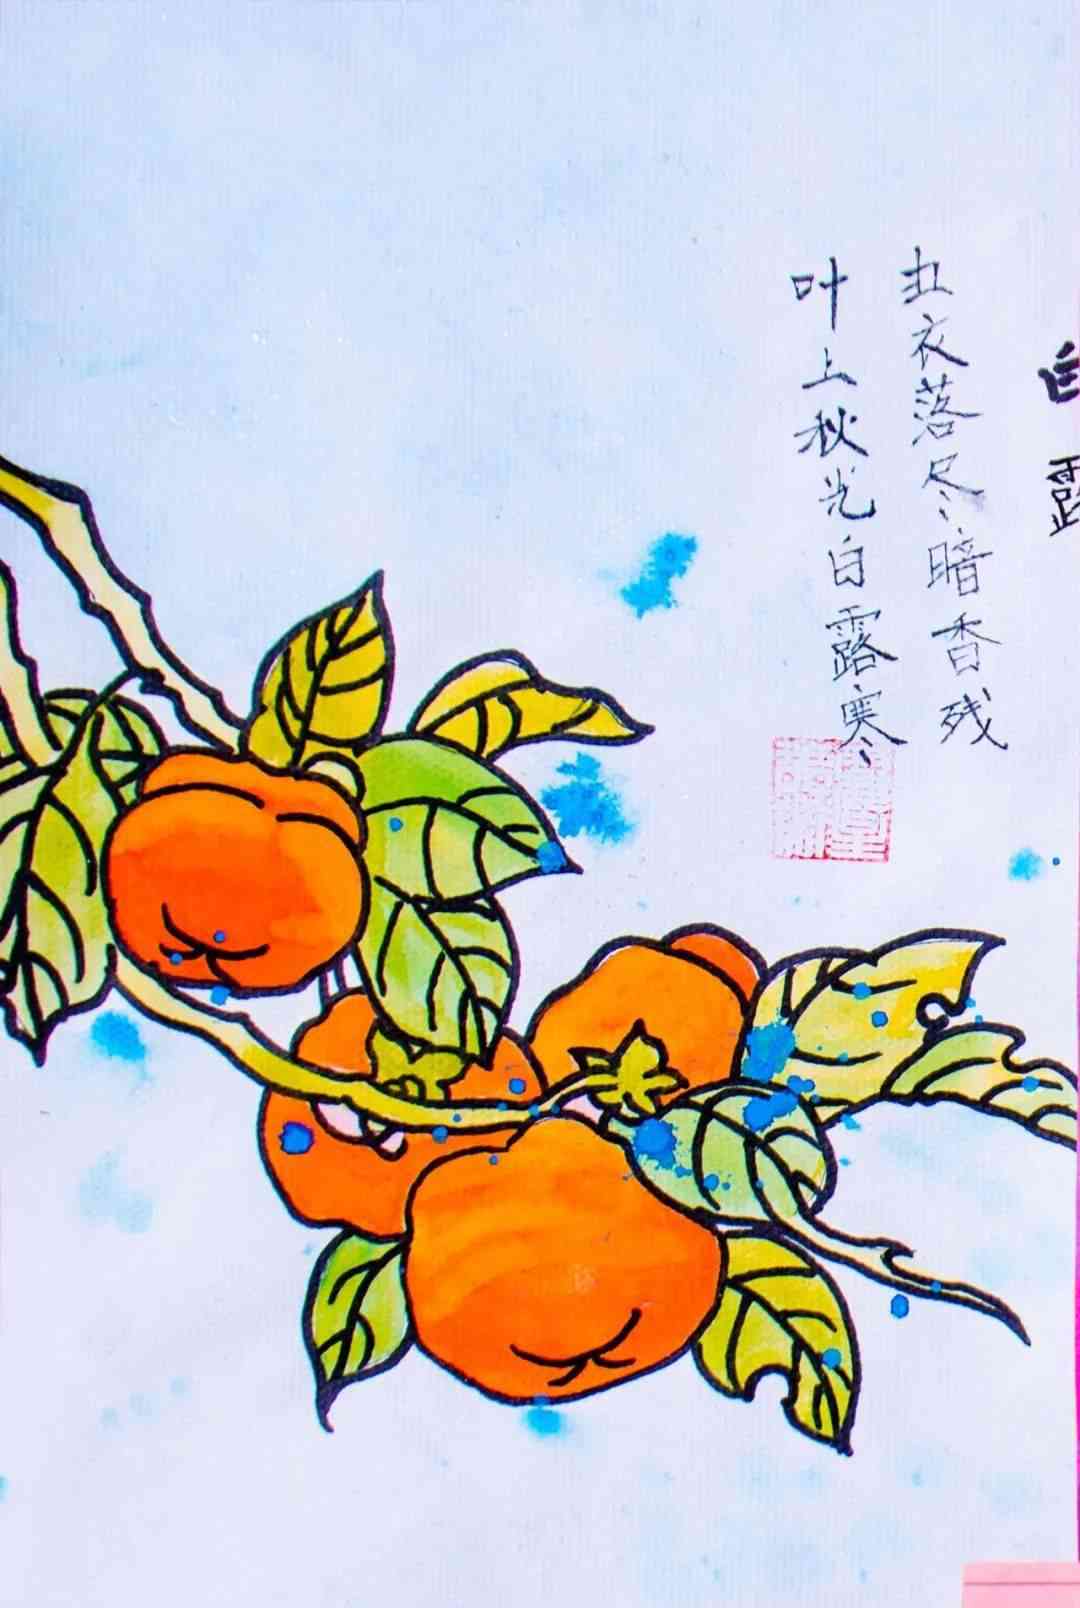 白露
红衣落尽暗香残
叶上秋光白露寒